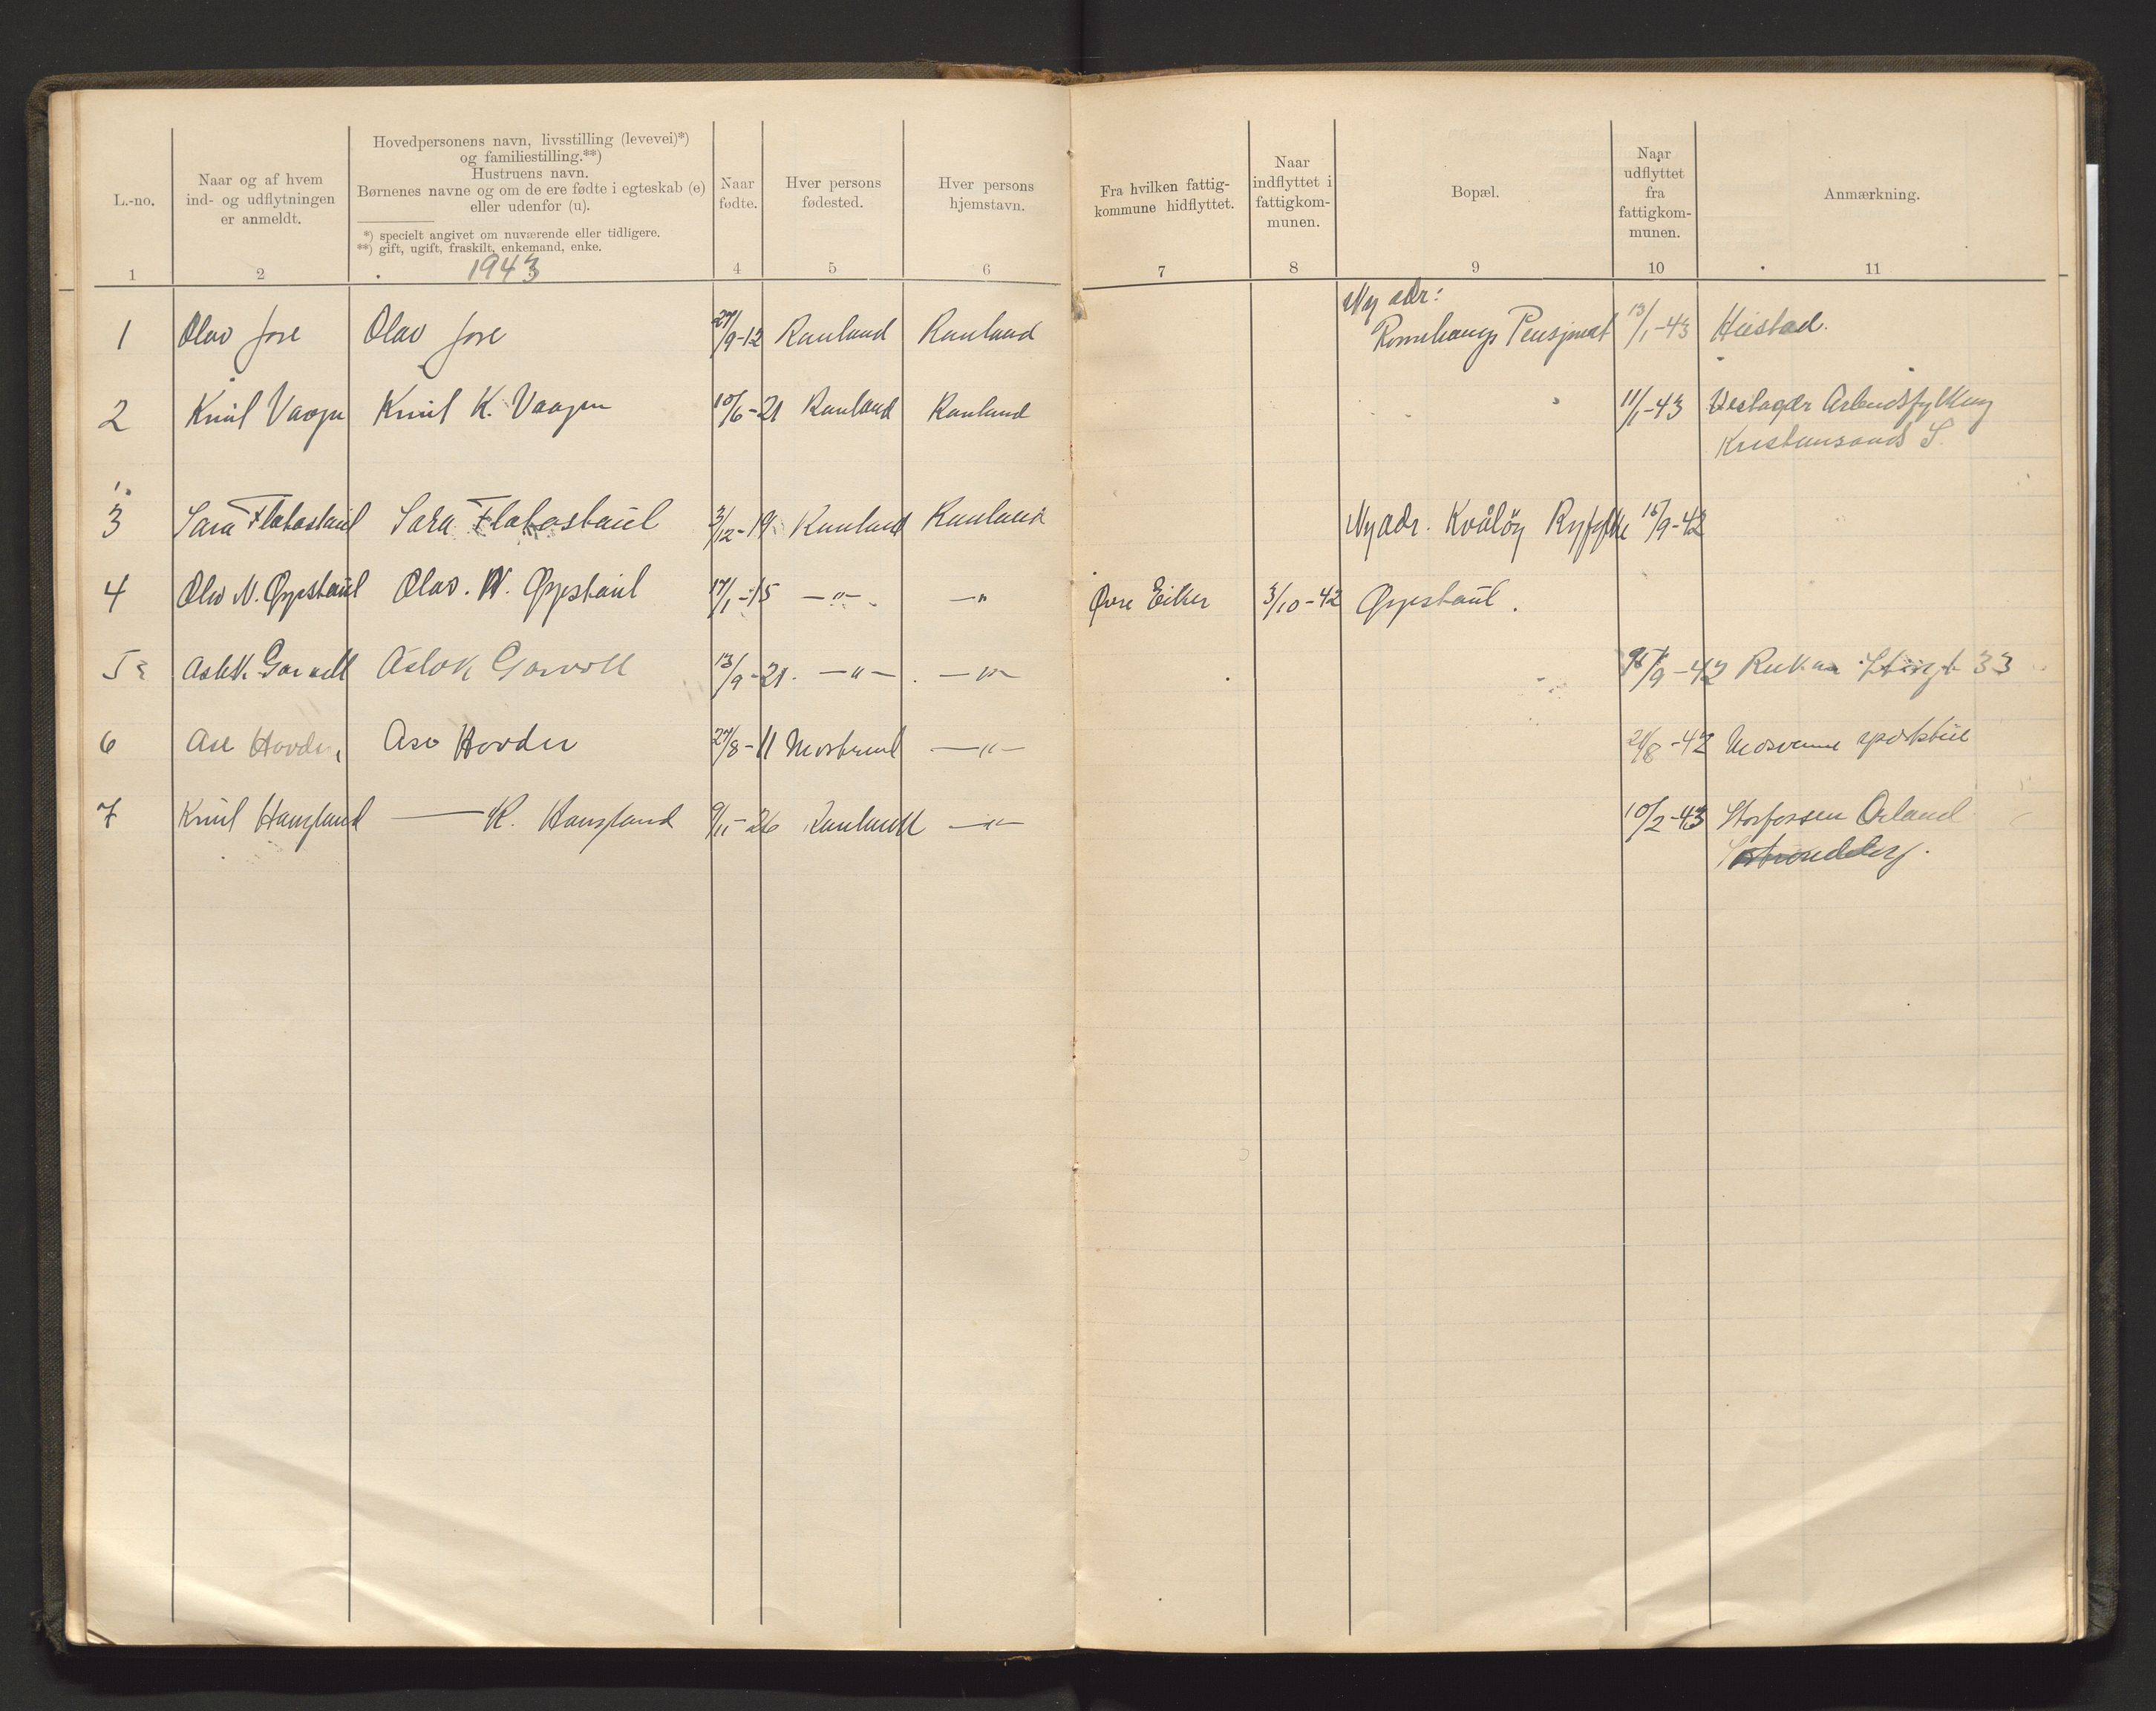 L.-no.
Naar og af hvem
ind- og udflytningen
er anmeldt.
Hovedpersonens navn, livsstilling (levevei)*)
og familiestilling.**)
Hustruens navn.
Børnenes navne og om de ere fødte i egteskab (e)
eller udenfor (u).
*) specielt angivet om nuværende eller tidligere.
**) gift, ugift, fraskilt, enkemand, enke.
Naar
fødte.
Hver persons
fødested.
Hver persons
hjemstavn.
Fra hvilken fattig-
kommune hidflyttet.
Naar
indflyttet i
fattigkom-
munen.
Bopæl.
Naar
udflyttet
fra
fattigkom-
munen.
Anmærkning.
1 2 1943 4 5 6 7 8 9 10 11
Ny adr:
1 Olav Jore Olav Jore 27/9-12 Rauland Rauland Pensjonat 13/1-43 Hustad.
2 Knut Vaagen Knut K. Vaagen 10/6-21 Rauland Rauland 11/1-43 Vestagder Arbeidsfylking
Kristiansand S.
3 Sara Flatastaul Sara Flatastaul 3/12-19 Rauland Rauland Ny adr. Kvåløy Ryfylke 15/9-42
4 Olav N. Øygestaul Olav. N. Øygestaul 17/1-15 -"- -" Øvre Eiker 3/10-42 Øygestaul.
5 Aslak Garvoll Aslak Garvoll 13/9-21. -"- -"- /9-42 Rukan 33
6 Ase Hovden Ase Hovden 27/8-11 -"- 21/8-42
7 Knut Haugland — K. Haugland 9/11-26 Rauland -"- 10/2-43 Storfossen Ørland